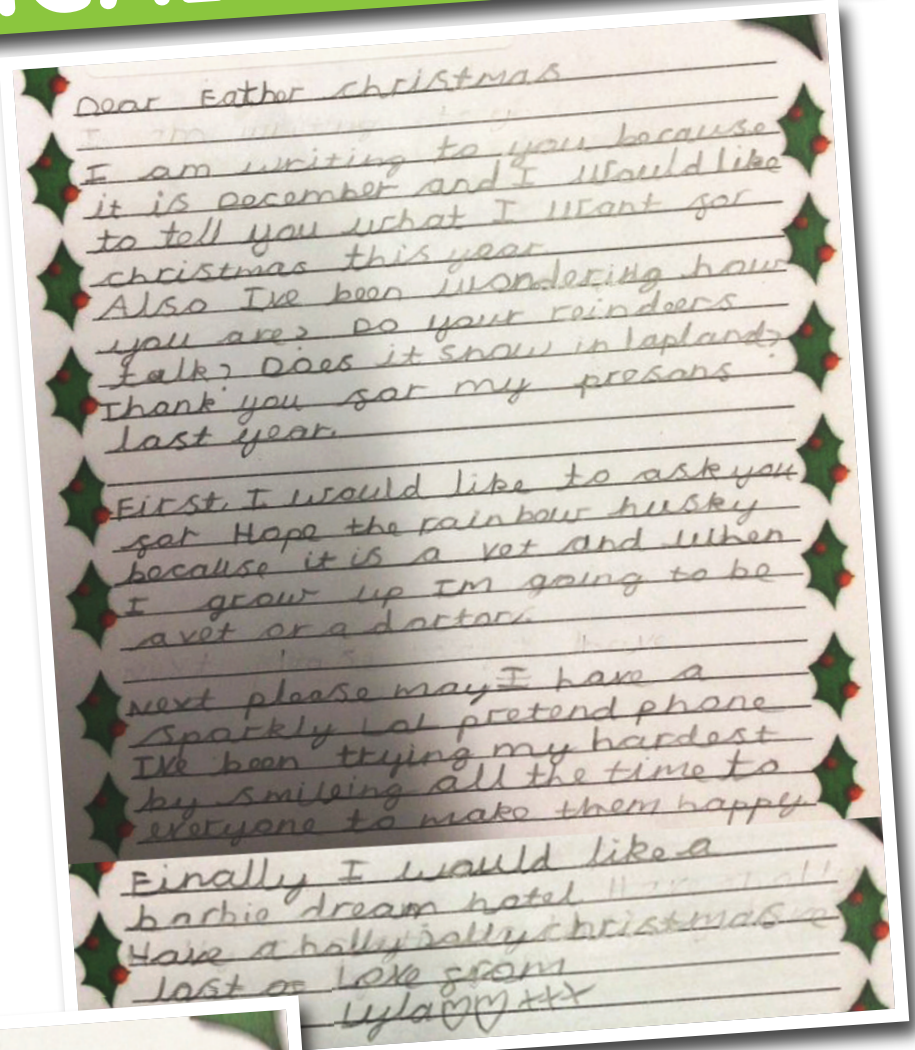 Dear Father christmas
I am writing to you because
it is December and I would like
to tell you what I want for
christmas this year
Also Ive been wondering how
you are? Do your reindeers
talk? Does it snow in lapland?
Thank you for my presans
last year.
First, I would like to ask you
for Hope the rainbow husky
because it is a vet and when
I grow up Im going to be
a vet or a doctor.
Next please may I have a
sparkly Lol pretend phone
Ive been trying my hardest
by smileing all the time to
everyone to make them happy.
Finally I would like a
barbie dream hotel
Have a holly jolly christmas
lost of Love from
Lyla♡♡+++